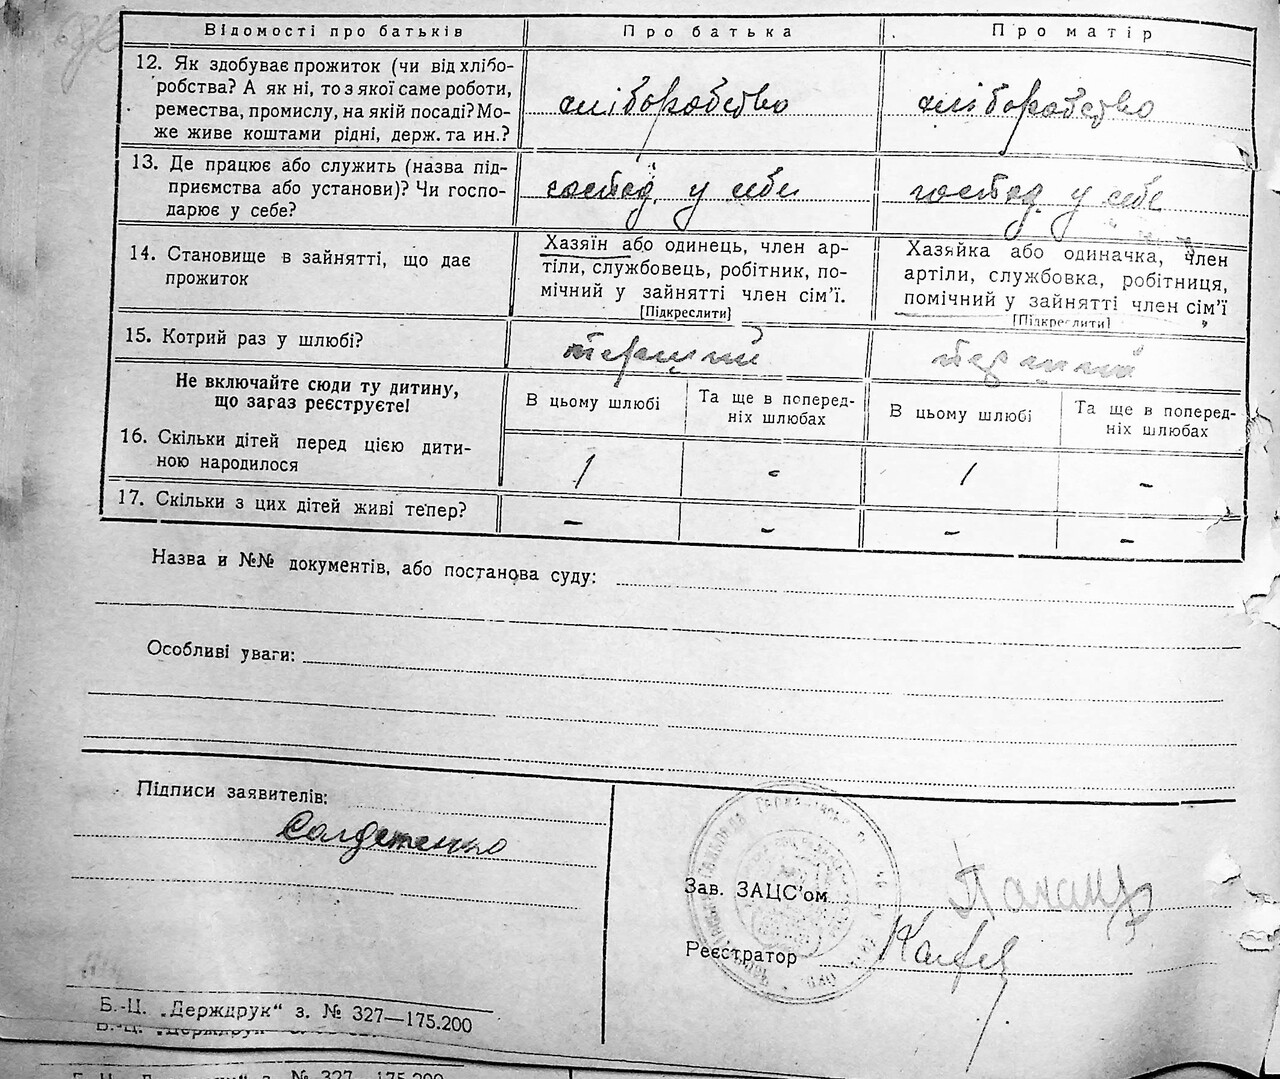 Відомості про батьків Про батька Про матір
12. Як здобуває прожиток (чи від хлібо-
робства? А як ні, то з якої саме роботи,
ремества, промислу, на якій посаді? Мо-
же живе коштами рідні, держ. та ин.?
хліборобство хліборобство
13. Де працює або служить (назва під-
приємства або установи)? Чи госпо-
дарює у себе?
господ. у себе господ. у себе
14. Становище в зайнятті, що дає
прожиток
Хазяїн або одинець, член ар-
тіли, службовець, робітник, по-
мічний у зайнятті член сім'ї.
[Підкреслити]
Хазяйка або одиначка, член
артіли, службовка, робітниця,
помічний у зайнятті член сім'ї
[Підкреслити]
15. Котрий раз у шлюбі?
перший перший
Не включайте сюди ту дитину,
що загаз реєструєте!
В цьому шлюбі
Та ще в поперед-
ніх шлюбах
В цьому шлюбі
Та ще в поперед-
ніх шлюбах
16. Скільки дітей перед цією дити-
ною народилося
1 - 1 -
17. Скільки з цих дітей живі тепер?
- - - -
Назва и №№ документів, або постанова суду:
Особливі уваги:
Підписи заявителів:
Солдатенко
Зав. ЗАЦС'ом
Реєстратор
Б.-Ц. „Держдрук" з. № 327—175.200
Б.-Ц. „Держдрук
Б.-Ц. „Держдрук" з. № 327—175.200